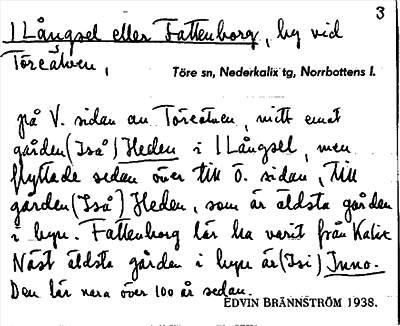 3
I Långsel eller Fattenborg, by vid
Töreälven,
Töre sn, Nederkalix tg, Norrbottens l.
på V. sidan av Töreälven, mitt emot
gården (Iså) Heden i I Långsel, men
flyttade sedan över till Ö. sidan, till
gården (Iså) Heden, som är äldsta gården
i byn. Fattenborg lär ha varit från Kalix
Näst äldsta gården i byn är (Isi) Inno.
Den lär vera över 100 år sedan.
EDVIN BRÄNNSTRÖM 1938.